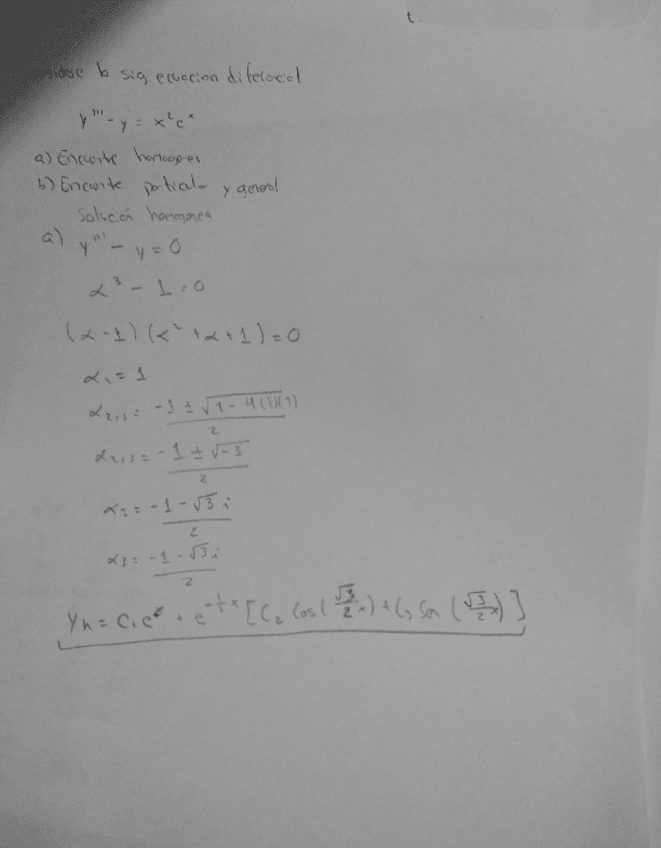 la sig ecuacion diferecial
y''' - y = x²eˣ
a) Encuentre
b) Encuentre particular y general
Solución homogenea
a) y''' - y = 0
α³ - 1 = 0
(α - 1) (α² + α + 1) = 0
α₁ = 1
α₂,₃ = -1 ± √1 - 4(1)(1) / 2
α₂,₃ = -1 ± √-3 / 2
α₂ = -1 - √3 i / 2
α₃ = -1 - √3 i / 2
Yh = C₁eˣ + e^(-½x) [C₂ Cos(√3/2 x) + C₃ Sen (√3/2 x)]